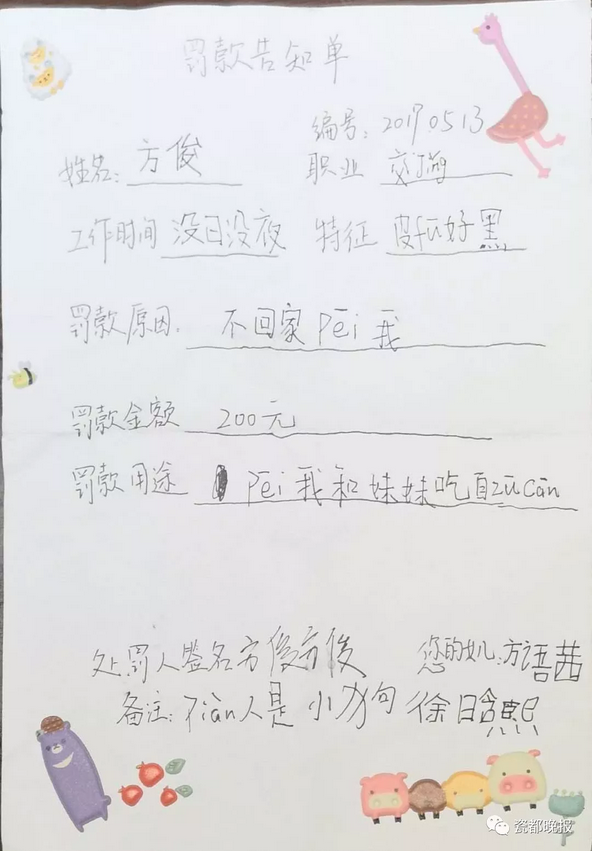 罚款告知单
编号:20170513
姓名:方俊 职业 交jǐng
工作时间 没日没夜 特征 皮fu好黑
罚款原因. 不回家Pēi我
罚款金额 200元
罚款用途 Pēi我和妹妹吃自zùcān
处罚人签名方俊方俊 您的女儿:方语茜
备注:Piàn人是小狗 徐晗熙
瓷都晚报